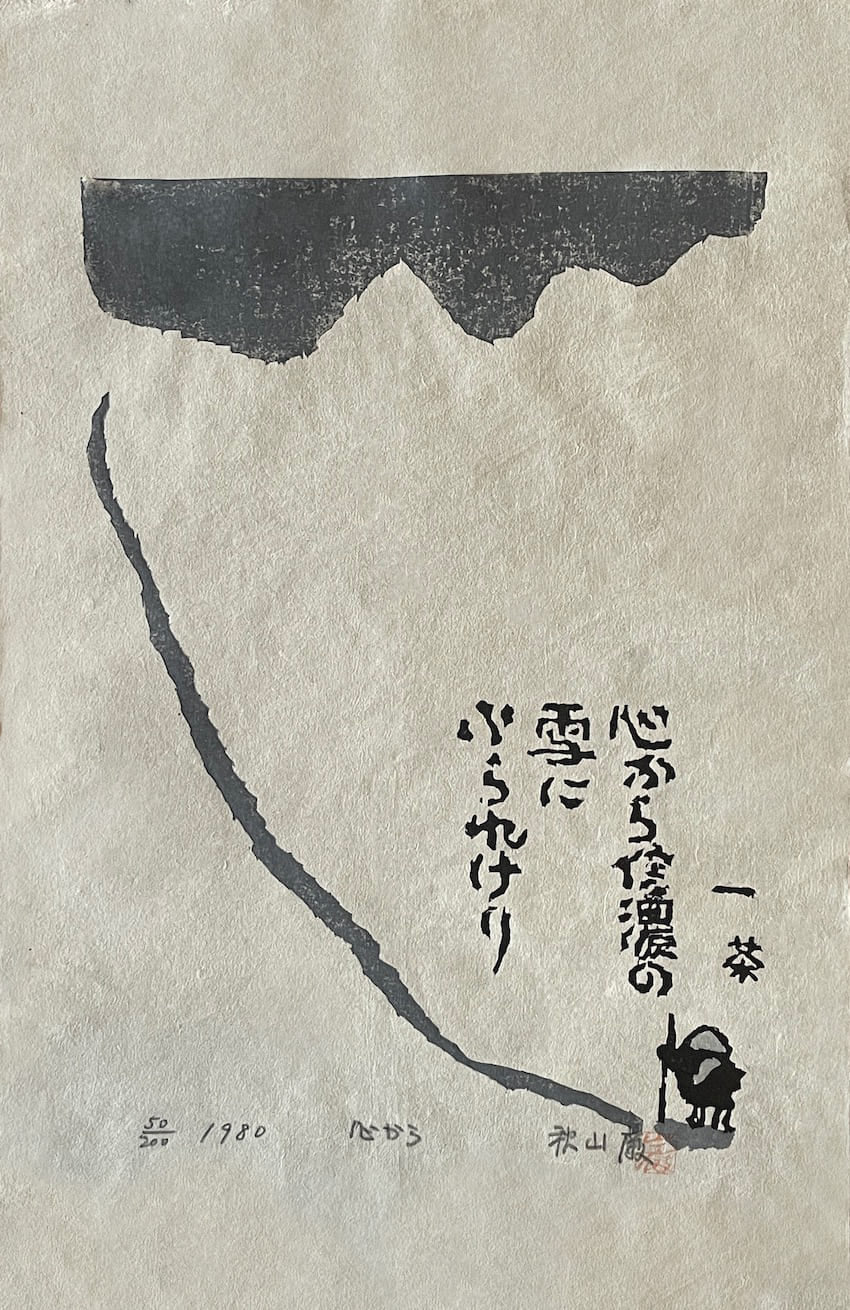 一茶
心から信濃の
雪に
ふられけり
50/200 1980 心から 秋山巌